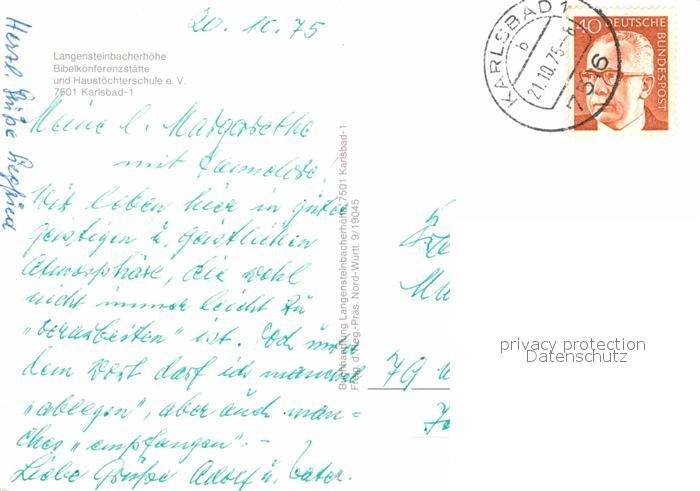 20.10.75
Langensteinbacherhöhe
Bibelkonferenzstätte
und Haustöchterschule e. V.
7501 Karlsbad-1
Meine l. Margarethe
mit Familie!
Wir leben hier in guter
geistigen u. geistlichen
Atmosphäre, die wohl
nicht immer leicht zu
„verarbeiten" ist. Doch unter
dem Wort darf ich manches
„ablegen", aber auch man=
ches „empfangen". -
Liebe Grüße Adolf u. Vater.
Herzl. Grüße Siegfried
Buchhandlung Langensteinbacherhöhe, 7501 Karlsbad-1
Freig. d. Reg.-Präs. Nord-Württ. 9/19045
KARLSBAD 1
b
21.10.75
7516
40 DEUTSCHE
BUNDESPOST
79
privacy protection
Datenschutz